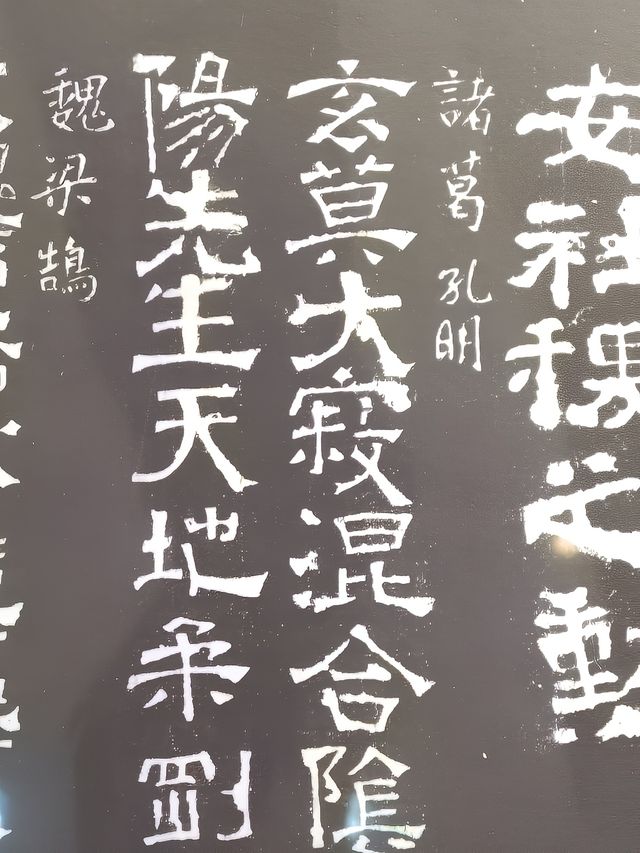 安社稷之勲
諸葛孔明
玄莫大寂混合陰
陽先生天地柔剛
魏梁鵠